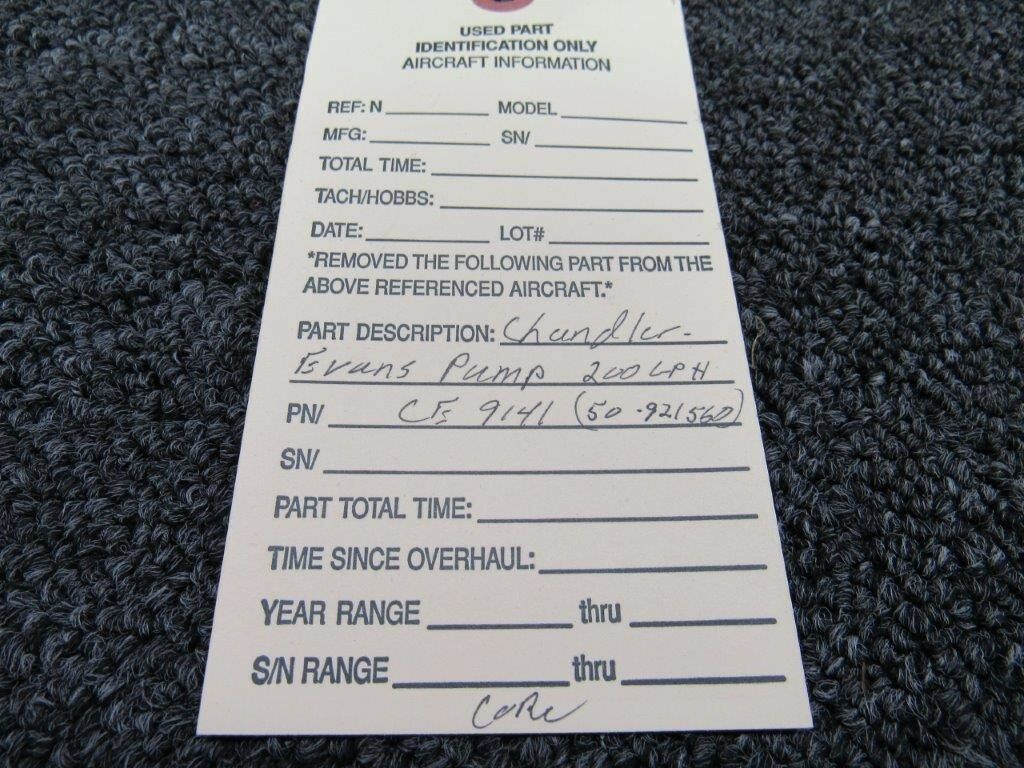 USED PART
IDENTIFICATION ONLY
AIRCRAFT INFORMATION
REF: N MODEL
MFG: SN/
TOTAL TIME:
TACH/HOBBS:
DATE: LOT#
*REMOVED THE FOLLOWING PART FROM THE
ABOVE REFERENCED AIRCRAFT.*
PART DESCRIPTION: Chandler-
Evans Pump 200 LPH
PN/ CE 9141 (50-921560)
SN/
PART TOTAL TIME:
TIME SINCE OVERHAUL:
YEAR RANGE thru
S/N RANGE thru
CORE